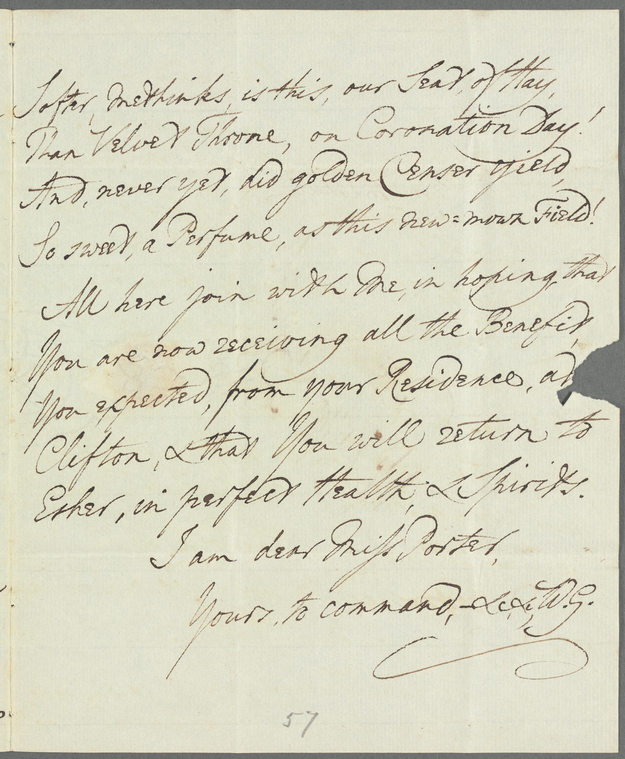 Softer, methinks, is this, our Seat, of Hay,
Than Velvet Throne, on Coronation Day!
And, never yet, did golden Censer yield,
So sweet, a Perfume, as this new=mown Field!
All here join with Me, in hoping, that
You are now receiving all the Benefit,
You expected, from your Residence, at
Clifton, & that You will return to
Esher, in perfect Health, & Spirits.
I am dear Miss Porter,
Yours, to command, &c, &c, W.G.
57